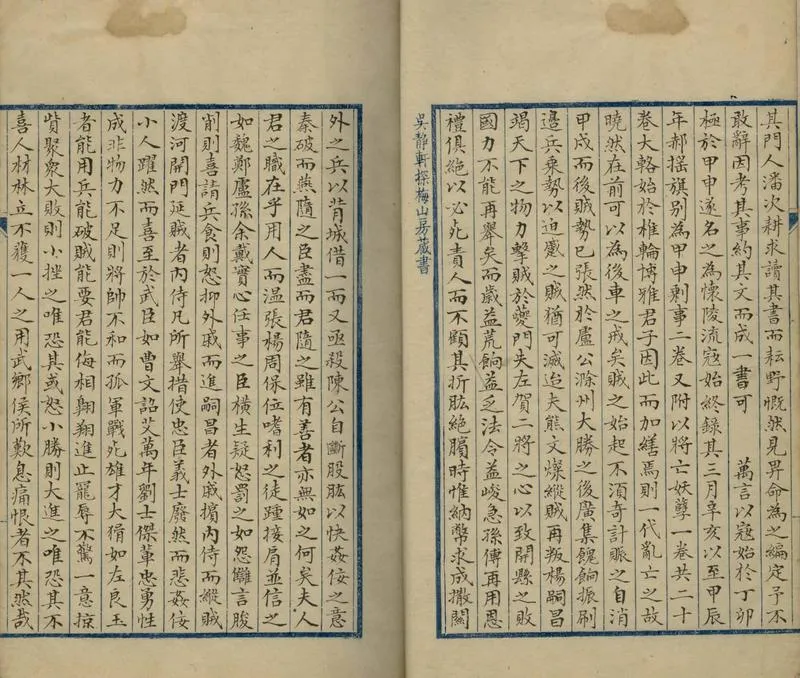 其門人潘次耕求請其書而耘野慨然見畀命為之編定予不
敢辭因考其事約其文而成一書可　萬言以寇始於丁卯
極於甲申遂名之為懷陵流寇始終錄其三月辛亥以至甲辰
年郝搖旗别為甲申剩事二卷又附以將亡妖孽一卷共二十
卷大輅始於椎輪博雅君子因此而加繕焉則一代亂亡之故
曉然在前可以為後車之戒矣賊之始起不湏奇計賑之自消
甲戌而後賊勢已張然於盧公滁州大勝之後廣集餽餉振刷
邉兵乘勢以迫蹙之賊猶可滅迨夫熊文燦縱賊再叛楊嗣昌
竭天下之物力擊賊於夔門失左賀二將之心以致開縣之敗
國力不能再舉矣而歲益荒餉益乏法令益峻急孫傅再用恩
禮俱絕以必死責人而不顧其折肱絕臏時惟納幣求成撤關
吳靜軒探梅山房藏書
外之兵以背城借一而又亟殺陳公自斷股肱以快姦佞之意
秦破而燕隨之臣盡而君隨之雖有善者亦無如之何矣夫人
君之職在乎用人而温張楊周保位嗜利之徒踵接肩並信之
如魏鄭盧孫余戴實心任事之臣橫生疑怒罰之如怨讎言朘
削則喜請兵食則怒抑外戚而進嗣昌者外戚擯內侍而縱賊
渡河開門延賊者內侍凡所舉措使忠臣義士廢然而悲姦佞
小人躍然而喜至於武臣如曹文詔艾萬年劉士傑輩忠勇性
成非物力不足則將帥不和而孤軍戰死雄才大猾如左良玉
者能用兵能破賊能要君能侮相翺翔進止寵辱不驚一意掠
貲聚衆大敗則小挫之唯恐其或怒小勝則大進之唯恐其不
喜人材林立不獲一人之用武鄉侯所歎息痛恨者不其然哉